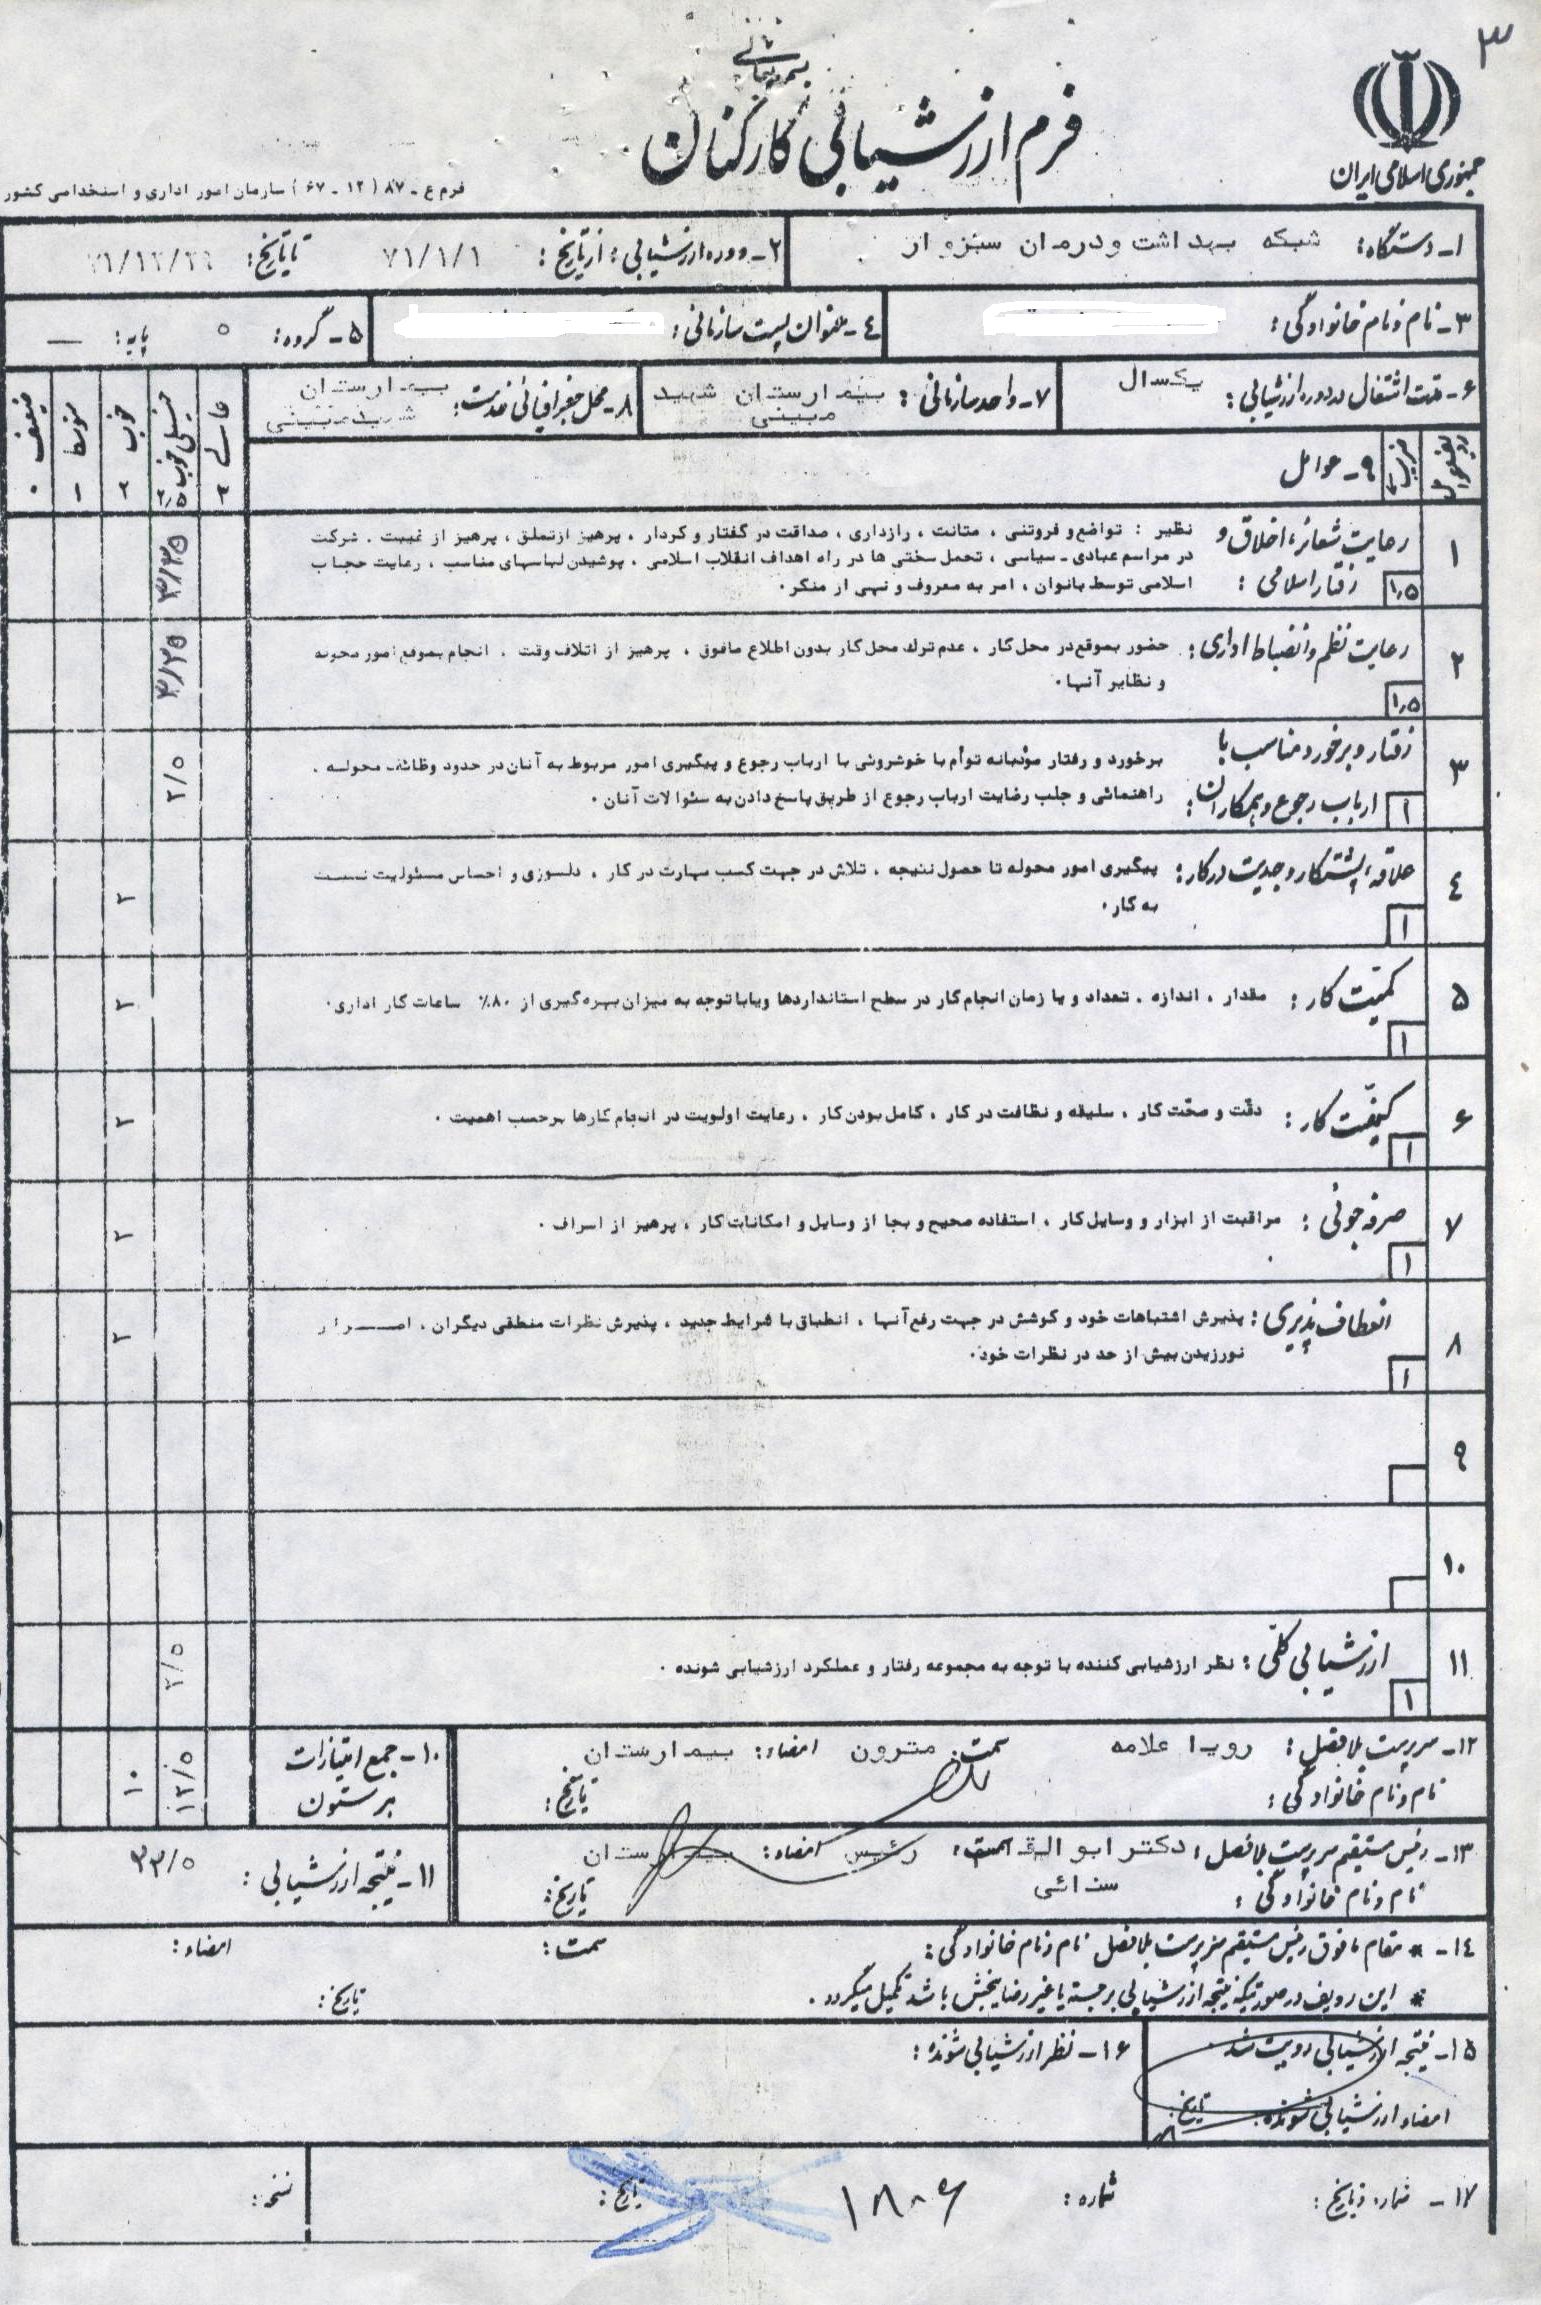 ۳
بسمه تعالی
فرم ارزشیابی کارکنان
جمهوری اسلامی ایران
فرم ع ـ ۸۷ ( ۱۲ ـ ۶۷ ) سازمان امور اداری و استخدامی کشور
۱ـ دستگاه: شبکه بهداشت و درمان سبزوار
۲ـ دوره ارزشیابی: از تاریخ: ۷۱/۱/۱ تا تاریخ: ۷۱/۱۲/۲۹
۳ـ نام و نام خانوادگی:
۴ـ عنوان پست سازمانی:
۵ـ گروه: ۵ پایه: —
۶ـ مدت اشتغال در دوره ارزشیابی: یکسال
۷ـ واحد سازمانی: بیمارستان شهید مبینی
۸ـ محل جغرافیائی خدمت: بیمارستان شهید مبینی
ردیف عوامل
ضریب
۹ـ عوامل
عالی ۳
خیلی خوب ۲٫۵
خوب ۲
متوسط ۱
ضعیف ۰
۱ رعایت شعائر، اخلاق و رفتار اسلامی: ۱٫۵
نظیر : تواضع و فروتنی ، متانت ، رازداری ، صداقت در گفتار و کردار ، پرهیز از تملق ، پرهیز از غیبت . شرکت
در مراسم عبادی ـ سیاسی ، تحمل سختی ها در راه اهداف انقلاب اسلامی ، پوشیدن لباسهای مناسب ، رعایت حجاب
اسلامی توسط بانوان ، امر به معروف و نهی از منکر .
۲ رعایت نظم و انضباط اداری: ۱٫۵
حضور بموقع در محل کار ، عدم ترك محل کار بدون اطلاع مافوق ، پرهیز از اتلاف وقت . انجام بموقع امور محوله
و نظایر آنها . ۳/۷۵
۳ رفتار و برخورد مناسب با ارباب رجوع و همکاران: ۱
برخورد و رفتار مؤدبانه توأم با خوشروئی با ارباب رجوع و پیگیری امور مربوط به آنان در حدود وظائف محوله .
راهنمائی و جلب رضایت ارباب رجوع از طریق پاسخ دادن به سئوالات آنان . ۲/۵
۴ علاقه، پشتکار و جدیت در کار: ۱
پیگیری امور محوله تا حصول نتیجه ، تلاش در جهت کسب مهارت در کار ، دلسوزی و احساس مسئولیت نسبت
به کار . ۲
۵ کمیت کار: ۱
مقدار ، اندازه . تعداد و یا زمان انجام کار در سطح استانداردها و یا با توجه به میزان بهره گیری از ۸۰٪ ساعات کار اداری . ۲
۶ کیفیت کار: ۱
دقت و صحت کار ، سلیقه و نظافت در کار ، کامل بودن کار ، رعایت اولویت در انجام کارها برحسب اهمیت . ۲
۷ صرفه جوئی: ۱
مراقبت از ابزار و وسایل کار ، استفاده صحیح و بجا از وسایل و امکانات کار ، پرهیز از اسراف . ۲
۸ انعطاف پذیری: ۱
پذیرش اشتباهات خود و کوشش در جهت رفع آنها ، انطباق با شرایط جدید ، پذیرش نظرات منطقی دیگران ، اصرار
نورزیدن بیش از حد در نظرات خود . ۲
۹
۱۰
۱۱ ارزشیابی کلی: ۱
نظر ارزشیابی کننده با توجه به مجموعه رفتار و عملکرد ارزشیابی شونده . ۲/۵
۱۰ـ جمع امتیازات هر ستون ۱۲/۵ ۱۰
۱۱ـ نتیجه ارزشیابی:
۱۲ـ سرپرست بلافصل: رویا علامه سمت: مترون امضاء: بیمارستان
نام و نام خانوادگی: تاریخ:
۱۳ـ رئیس مستقیم سرپرست بلافصل: دکتر ابوالقاسم سنائی سمت: رئیس امضاء: بیمارستان
نام و نام خانوادگی: تاریخ:
۱۴ـ * مقام مافوق رئیس مستقیم سرپرست بلافصل نام و نام خانوادگی: سمت: امضاء:
* این ردیف در صورتیکه نتیجه ارزشیابی برجسته یا غیر رضایتبخش باشد تکمیل میگردد . تاریخ:
۱۵ـ نتیجه ارزشیابی رویت شد
امضاء ارزشیابی شونده: تاریخ:
۱۶ـ نظر ارزشیابی شونده:
۱۷ـ شماره و تاریخ: شماره: ۱۸۰۶ تاریخ: نسخه: